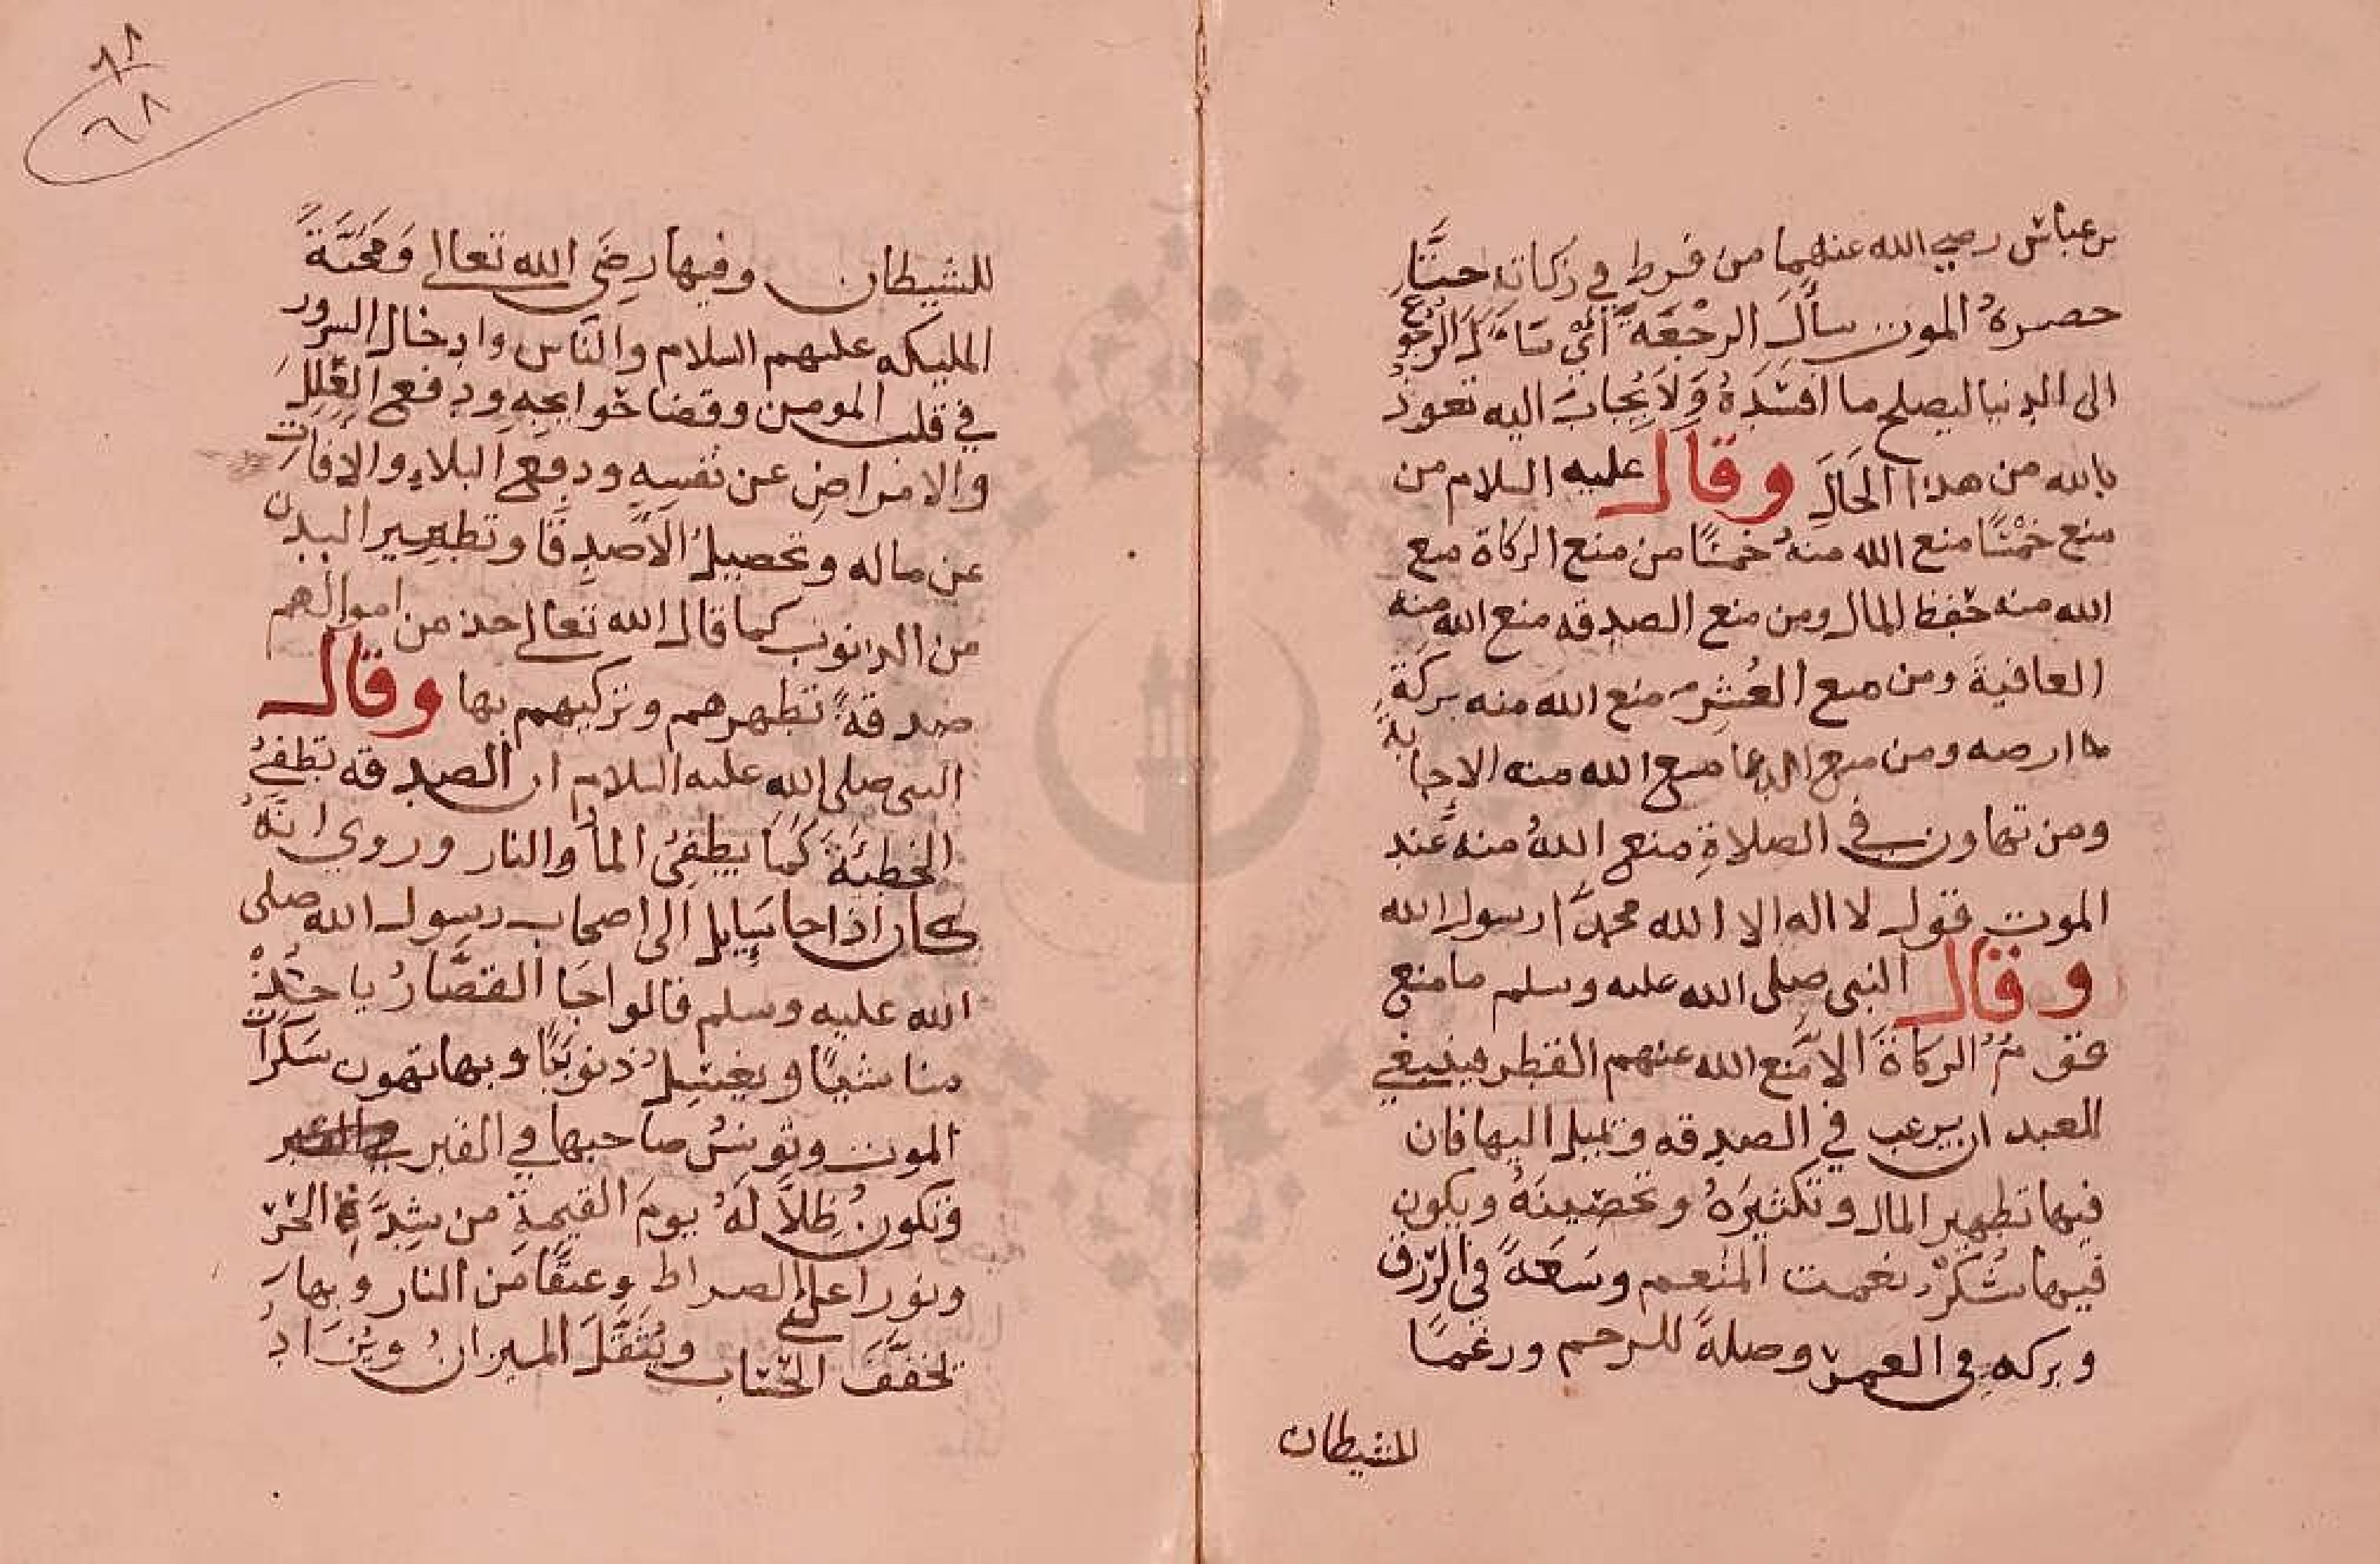 بن عباس رضي الله عنهما من فرط في زكاته حتا
حصره الموت سأل الرجعة أي سأل الرجوع
الى الدنيا ليصلح ما افسده ولا يجاب اليه نعوذ
بالله من هذا الحال وقال عليه السلام من
منع خمسًا منع الله منه خمسًا من منع الزكاة منع
الله منه حفظ المال ومن منع الصدقه منع الله منه
العافية ومن منع العشر منع الله منه بركة
ما ارضه ومن منع الدعا منع الله منه الاجابة
ومن تهاون في الصلاة منع الله منه عند
الموت قول لا اله الا الله محمدًا رسول الله
وقال النبي صلى الله عليه وسلم ما منع
الزكاة الا منع الله عنهم القطر فينبغي
للعبد ان يرغب في الصدقه ويميل اليها فان
فيها تطهير المال وتكثيره وتحصينه ويكون
فيها شكر نعمت المنعم وسعة في الرزق
وبركه في العمر وصلة للرحم ورغمًا
للشيطان
٦٨
٦٨
للشيطان وفيها رضى الله تعالى ومحبة
المليكه عليهم السلام والناس وادخال السرور
في قلب المومن وقضا حوايجه ودفع العلل
والامراض عن نفسه ودفع البلاء والافات
عن ماله وتحصيل الاصدقا وتطهير البدن
من الدنوب كما قال الله تعالى خذ من اموالهم
صدقة تطهرهم وتزكيهم بها وقال
النبي صلى الله عليه السلام ان الصدقه تطفئ
الخطيئة كما يطفئ الماء والنار وروي انه
كان اذا جا سايل الى اصحاب رسول الله صلى
الله عليه وسلم قالوا جا القصار ياخذ
منا شيا ويغسل ذنوبنا وبها تهون سكرات
الموت وتونس صاحبها في القبر
وتكون ظلًا له يوم القيمة من شدة الحر
ونورا على الصراط وعتقا من النار وبها
تخفف الحساب ويثقل الميزان ويزاد